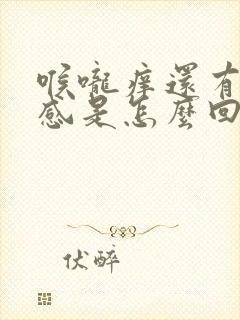 喉嚨痒還有
感是怎麼回
伏醉